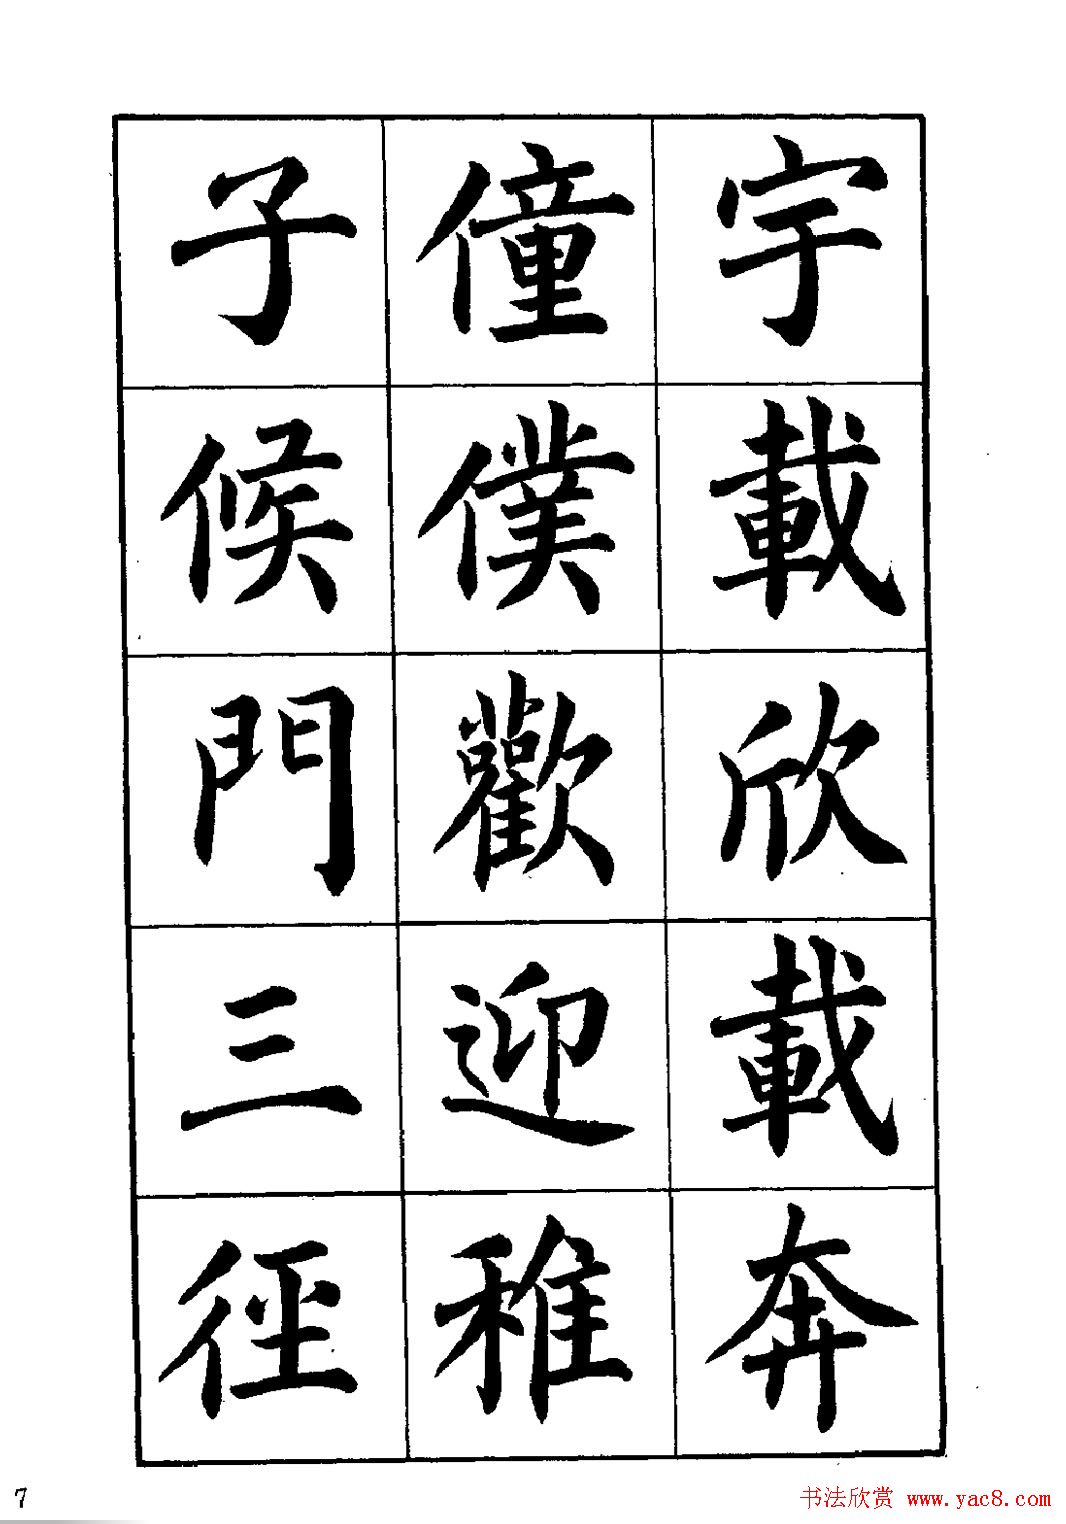 宇載欣載奔
僮僕歡迎稚
子候門三徑
7
书法欣赏 www.yac8.com